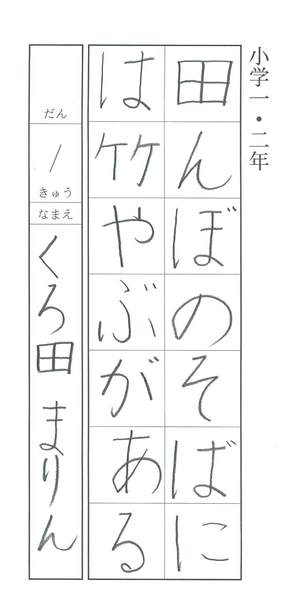 小学一・二年
田んぼのそばに
は竹やぶがある
だん
1
きゅう
なまえ
くろ田 まりん